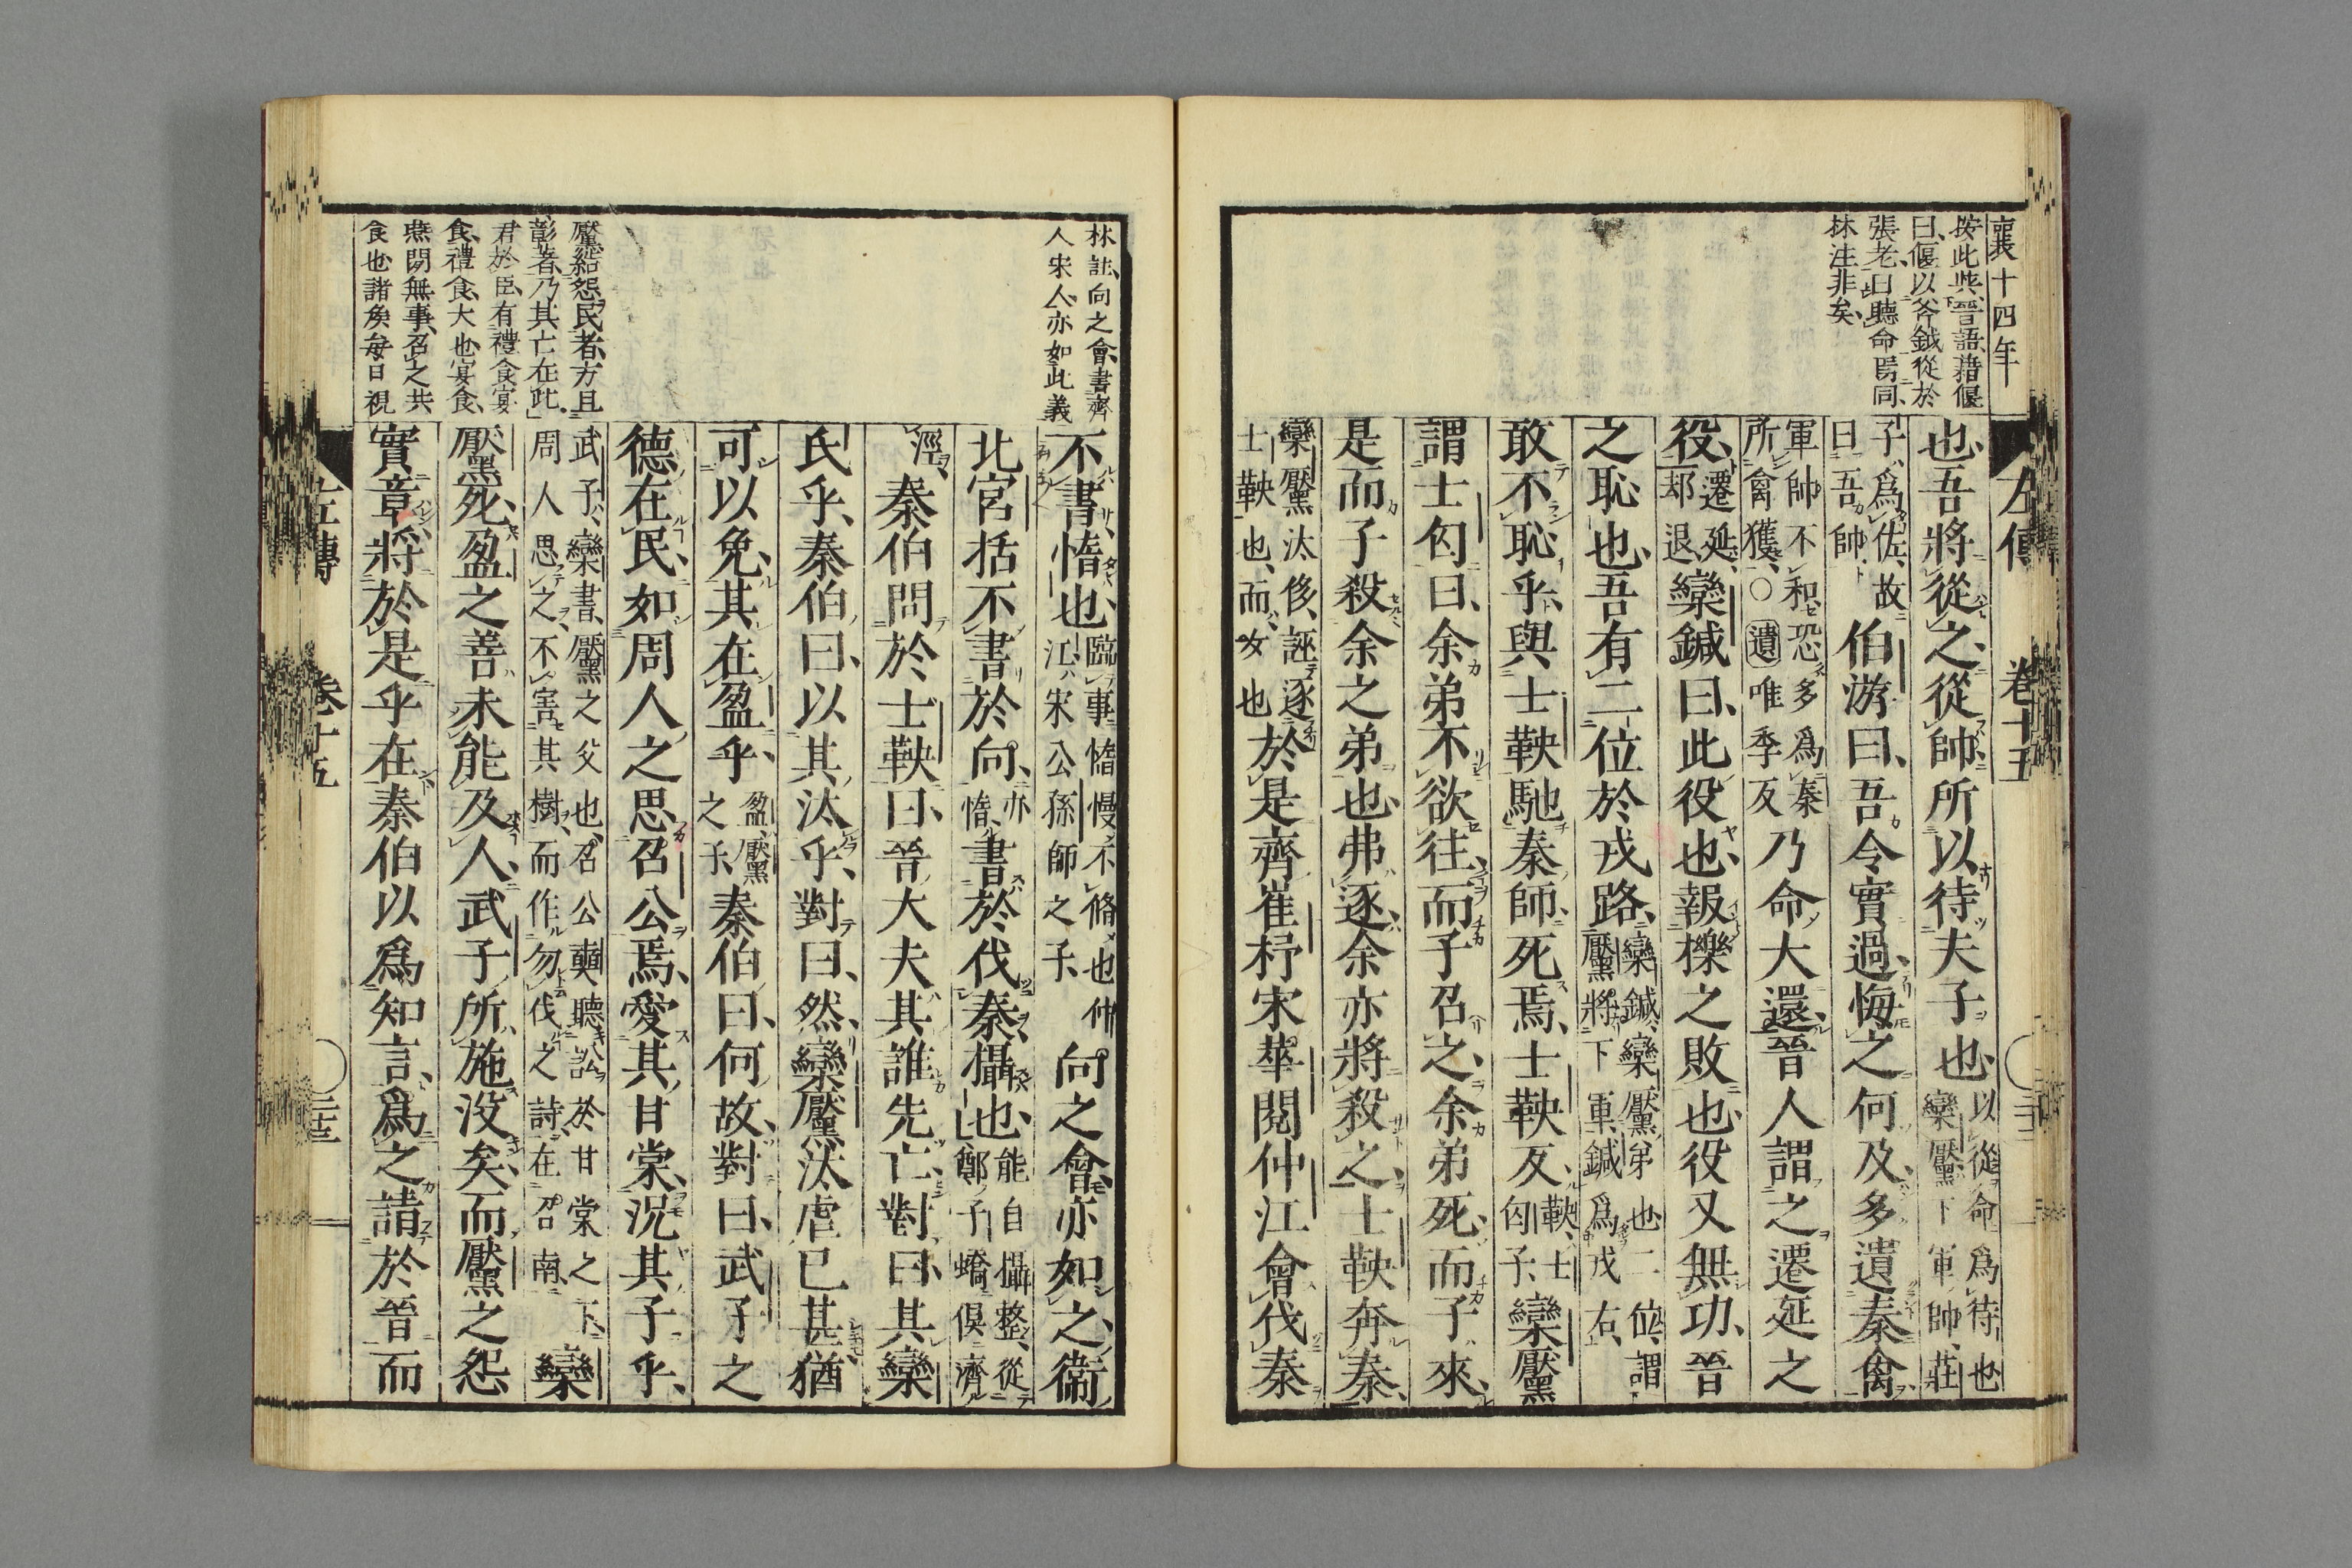 襄十四年
按此柴晉語藉偃
曰偃以斧鉞從於
張老曰聽命焉同
林注非矣
左傳 卷十五
也吾將從之從帥所以待夫子也以從命爲待也
欒黶下軍帥莊
子爲佐故
曰吾帥伯游曰吾令實過悔之何及多遺秦禽
軍帥不和恐多爲秦
所禽獲○遺唯季反乃命大還晉人謂之遷延之
役遷延
却退欒鍼曰此役也報櫟之敗也役又無功晉
之恥也吾有二位於戎路欒鍼欒黶弟也二位謂
黶將下軍鍼爲戎右
敢不恥乎與士鞅馳秦師死焉士鞅反鞅士
匃子欒黶
謂士匃曰余弟不欲往而子召之余弟死而子來
是而子殺余之弟也弗逐余亦將殺之士鞅奔秦
欒黶汰侈誣逐
士鞅也而女也於是齊崔杼宋華閱仲江會伐秦
林註向之會書齊
人宋人亦如此義
不書惰也臨事惰慢不脩也仲
江宋公孫師之子向之會亦如之衞
北宮括不書於向亦
惰書於伐秦攝也能自攝整從
鄭子蟜俱濟
涇秦伯問於士鞅曰晉大夫其誰先亡對曰其欒
氏乎秦伯曰以其汰乎對曰然欒黶汰虐已甚猶
可以免其在盈乎盈黶
之子秦伯曰何故對曰武子之
德在民如周人之思召公焉愛其甘棠況其子乎
武子欒書黶之父也召公奭聽訟於甘棠之下
周人思之不害其樹而作勿伐之詩在召南欒
黶死盈之善未能及人武子所施沒矣而黶之怨
實章將於是乎在秦伯以爲知言爲之請於晉而
黶經怨民者方且
彰著乃其亡在此
君於臣有禮食宴
食禮食大也宴食
燕閒無事召之共
食也諸矦每日視
左傳 卷十五